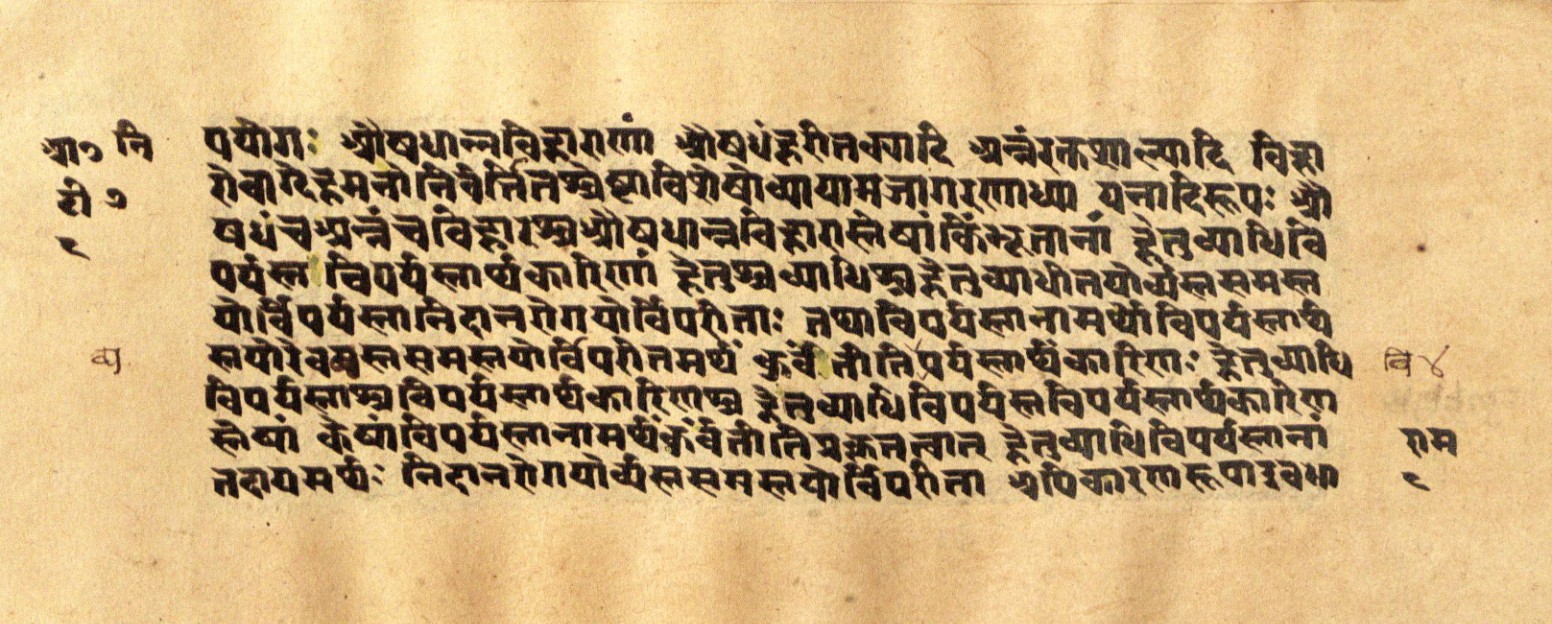 आ० नि
टी०
८
पयोगः औषधान्नविहाराणां औषधंहरीतक्यादि अन्नंरक्तशाल्यादि विहा
रोवाग्देहमनोनिर्वर्त्तितश्चेष्टाविशेषोव्यायामजागरणाध्या यनादिरूपः औ
षधंचअन्नंचविहारश्चऔषधान्नविहारास्तेषांकिंभूतानां हेतुव्याधिवि
पर्यस्त विपर्यस्तार्थकारिणां हेतुश्चव्याधिश्चहेतुव्याधीतयोर्व्यस्तसमस्त
योर्विपर्यस्तानिदानरोगयोर्विपरीताः तथाविपर्यस्तानामर्थोविपर्यस्तार्थ
स्तयोरेवव्यस्तसमस्तयोर्विपरीतमर्थं कुर्वंतीतिपर्यस्तार्थकारिणः हेतुव्याधि
व्य
वि ४
विपर्यस्ताश्चविपर्यस्तार्थकारिणश्च हेतुव्याधिविपर्यस्तविपर्यस्तार्थकारिण
स्तेषां केषांविपर्यस्तानामर्थंकुर्वंतीतिप्रकृतत्वात् हेतुव्याधिविपर्यस्तानां
तदायमर्थः निदानरोगयोर्व्यस्तसमस्तयोर्विपरीता अपिकारणरूपादेवधा
राम
८